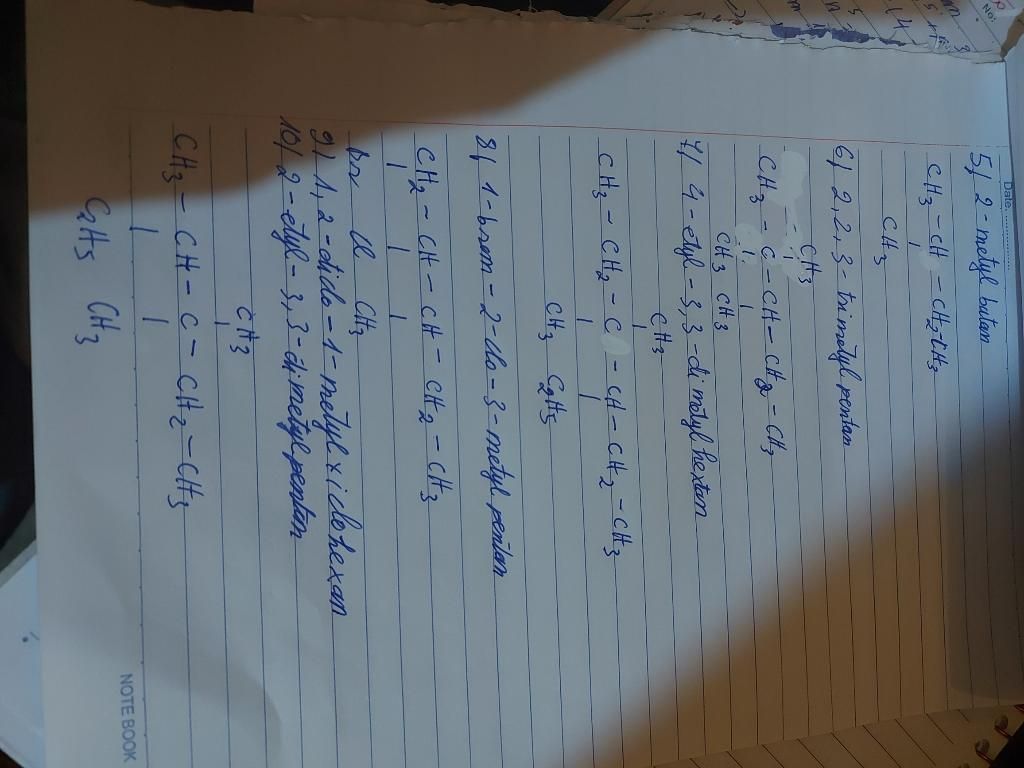 Date
No:
5/ 2-metyl butan
CH3 - CH - CH2-CH3
CH3
6/ 2,2,3-trimetyl pentan
CH3
CH3 - C - CH - CH2 - CH3
CH3 CH3
7/ 4-etyl-3,3-dimetyl hextan
CH3
CH3 - CH2 - C - CH - CH2 - CH3
CH3 C2H5
8/ 1-brom-2-clo-3-metyl pentan
CH2 - CH - CH - CH2 - CH3
br Cl CH3
9/ 1,2-diclo-1-metyl xiclohexan
10/ 2-etyl-3,3-dimetyl pentan
CH3
CH3 - CH - C - CH2 - CH3
C2H5 CH3
NOTEBOOK